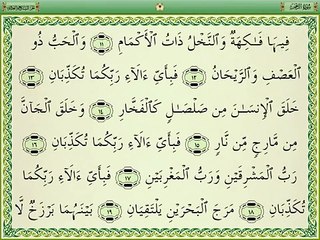 فِيهَا فَـٰكِهَةٌ وَٱلنَّخْلُ ذَاتُ ٱلْأَكْمَامِ ١١ وَٱلْحَبُّ ذُو
ٱلْعَصْفِ وَٱلرَّيْحَانُ ١٢ فَبِأَىِّ ءَالَآءِ رَبِّكُمَا تُكَذِّبَانِ ١٣
خَلَقَ ٱلْإِنسَـٰنَ مِن صَلْصَـٰلٍ كَٱلْفَخَّارِ ١٤ وَخَلَقَ ٱلْجَآنَّ
مِن مَّارِجٍ مِّن نَّارٍ ١٥ فَبِأَىِّ ءَالَآءِ رَبِّكُمَا تُكَذِّبَانِ ١٦
رَبُّ ٱلْمَشْرِقَيْنِ وَرَبُّ ٱلْمَغْرِبَيْنِ ١٧ فَبِأَىِّ ءَالَآءِ رَبِّكُمَا
تُكَذِّبَانِ ١٨ مَرَجَ ٱلْبَحْرَيْنِ يَلْتَقِيَانِ ١٩ بَيْنَهُمَا بَرْزَخٌ لَّا